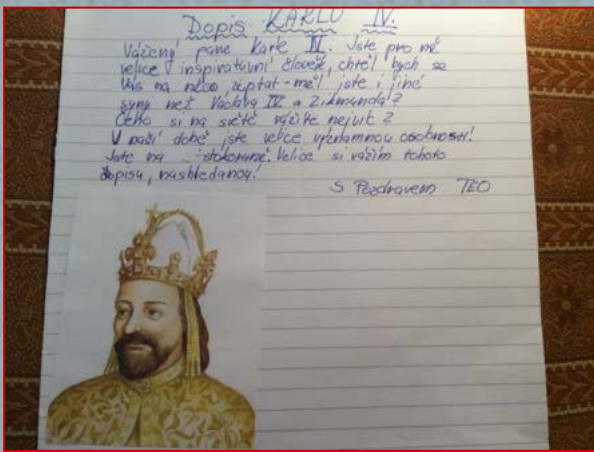 Dopis KARLU IV.
Vážený pane Karle IV. Jste pro mě
velice inspirativní člověk, chtěl bych se
Vás na něco zeptat - měl jste i jiné
syny než Václava IV a Zikmunda?
Čeho si na světě vážíte nejvíc?
V naší době jste velice významnou osobností!
Jste na stokoruně. Velice si vážím tohoto
dopisu, nashledanou!
S Pozdravem TEO